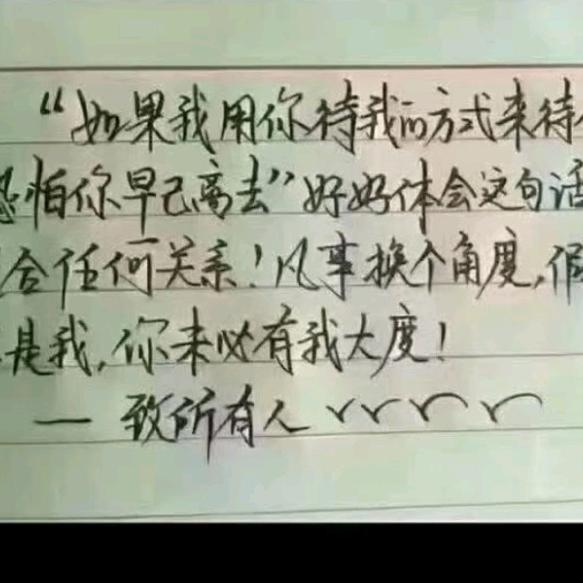 “如果我用你待我的方式来待
恐怕你早已离去”好好体会这句话
合任何关系！凡事换个角度，假
是我，你未必有我大度！
— 致所有人